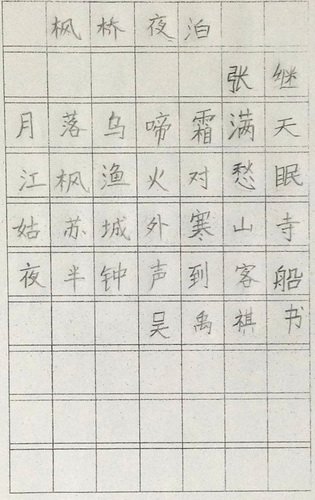 枫桥夜泊
张继
月落乌啼霜满天
江枫渔火对愁眠
姑苏城外寒山寺
夜半钟声到客船
吴禹祺书